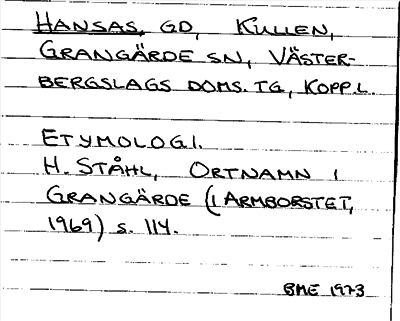 HANSAS, GD, KULLEN,
GRANGÄRDE SN, VÄSTER-
BERGSLAGS DOMS. TG, KOPP.L.
ETYMOLOGI.
H. STÅHL, ORTNAMN I
GRANGÄRDE (I ARMBORSTET,
1969) S. 114.
BME 1973